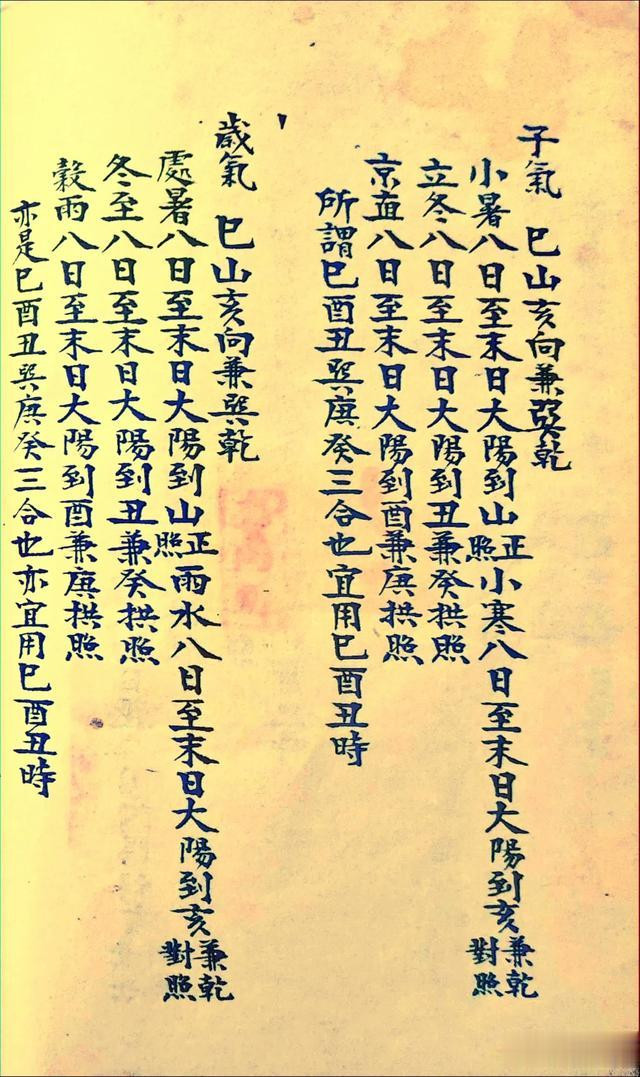 子氣 巳山亥向兼巽乾
小暑八日至末日大陽到山正照小寒八日至末日大陽到亥兼乾對照
立冬八日至末日大陽到丑兼癸拱照
京直八日至末日大陽到酉兼庚拱照
所謂巳酉丑巽庚癸三合也宜用巳酉丑時
歲氣 巳山亥向兼巽乾
處暑八日至末日大陽到山正照雨水八日至末日大陽到亥兼乾對照
冬至八日至末日大陽到丑兼癸拱照
穀雨八日至末日大陽到酉兼庚拱照
亦是巳酉丑巽庚癸三合也亦宜用巳酉丑時